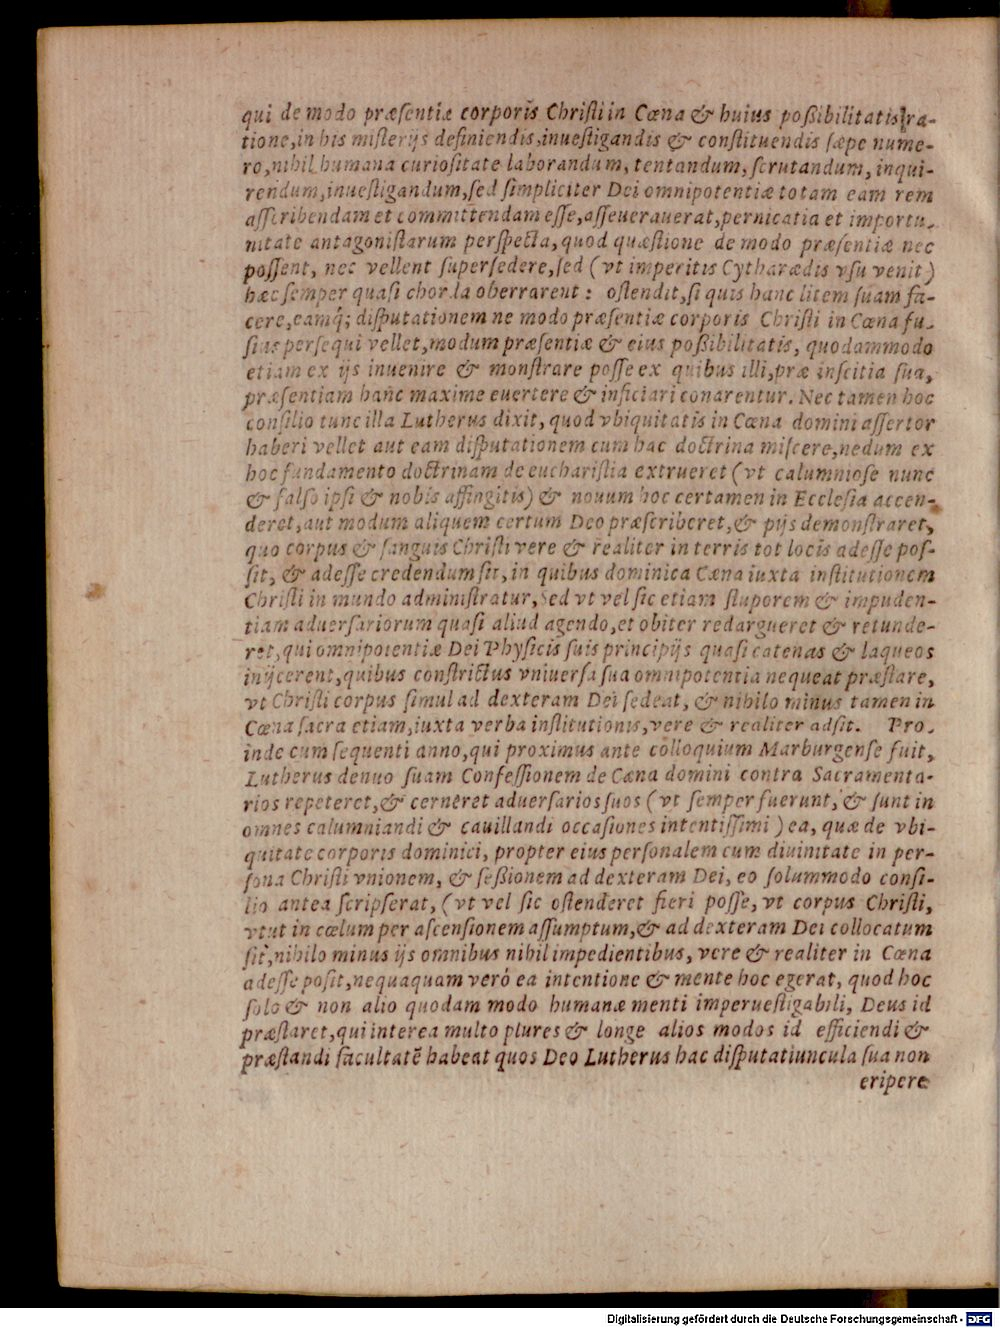 qui de modo præſentiæ corporis Chriſti in Cœna & huius poßibilitatis ra-
tione, in his miſterijs definiendis, inueſtigandis & conſtituendis ſæpe nume-
ro, nihil humana curioſitate laborandum, tentandum, ſcrutandum, inqui-
rendum, inueſtigandum, ſed ſimpliciter Dei omnipotentiæ totam eam rem
aſſcribendam et committendam eſſe, aſſeuerauerat, pernicatia et importu-
nitate antagoniſtarum perſpecta, quod quæſtione de modo præſentiæ nec
poſſent, nec vellent ſuperſedere, ſed (vt imperitis Cytharædis vſu venit)
hæc ſemper quaſi chorda oberrarent: oſtendit, ſi quis hanc litem ſuam fa-
cere, eamq́; diſputationem ne modo præſentiæ corporis Chriſti in Cœna fu-
ſius perſequi vellet, modum præſentiæ & eius poßibilitatis, quodammodo
etiam ex ijs inuenire & monſtrare poſſe ex quibus illi, præ inſcitia ſua,
præſentiam hanc maxime euertere & inficiari conarentur. Nec tamen hoc
conſilio tunc illa Lutherus dixit, quod vbiquitatis in Cœna domini aſſertor
haberi vellet aut eam diſputationem cum hac doctrina miſcere, nedum ex
hoc fundamento doctrinam de euchariſtia extrueret (vt calumnioſe nunc
& falſo ipſi & nobis affingitis) & nouum hoc certamen in Eccleſia accen-
deret, aut modum aliquem certum Deo præſcriberet, & pijs demonſtraret,
quo corpus & ſanguis Chriſti vere & realiter in terris tot locis adeſſe poſ-
ſit, & adeſſe credendum ſit, in quibus dominica Cœna iuxta inſtitutionem
Chriſti in mundo adminiſtratur, Sed vt vel ſic etiam ſtuporem & impuden-
tiam aduerſariorum quaſi aliud agendo, et obiter redargueret & retunde-
ret, qui omnipotentiæ Dei Phyſicis ſuis principijs quaſi catenas & laqueos
inijcerent, quibus conſtrictus vniuerſa ſua omnipotentia nequeat præſtare,
vt Chriſti corpus ſimul ad dexteram Dei ſedeat, & nihilo minus tamen in
Cœna ſacra etiam, iuxta verba inſtitutionis, vere & realiter adſit. Pro-
inde cum ſequenti anno, qui proximus ante colloquium Marburgenſe fuit,
Lutherus denuo ſuam Confeſſionem de Cœna domini contra Sacramenta-
rios repeteret, & cerneret aduerſarios ſuos (vt ſemper fuerunt, & ſunt in
omnes calumniandi & cauillandi occaſiones intentiſſimi) ea, quæ de vbi-
quitate corporis dominici, propter eius perſonalem cum diuinitate in per-
ſona Chriſti vnionem, & ſeßionem ad dexteram Dei, eo ſolummodo conſi-
lio antea ſcripſerat, (vt vel ſic oſtenderet fieri poſſe, vt corpus Chriſti,
vtut in cœlum per aſcenſionem aſſumptum, & ad dexteram Dei collocatum
ſit, nihilo minus ijs omnibus nihil impedientibus, vere & realiter in Cœna
adeſſe poſit, nequaquam veró ea intentione & mente hoc egerat, quod hoc
ſolo & non alio quodam modo humanæ menti imperueſtigabili, Deus id
præſtaret, qui interea multo plures & longe alios modos id efficiendi &
præſtandi facultatē habeat quos Deo Lutherus hac diſputatiuncula ſua non
eripere
Digitalisierung gefördert durch die Deutsche Forschungsgemeinschaft - DFG